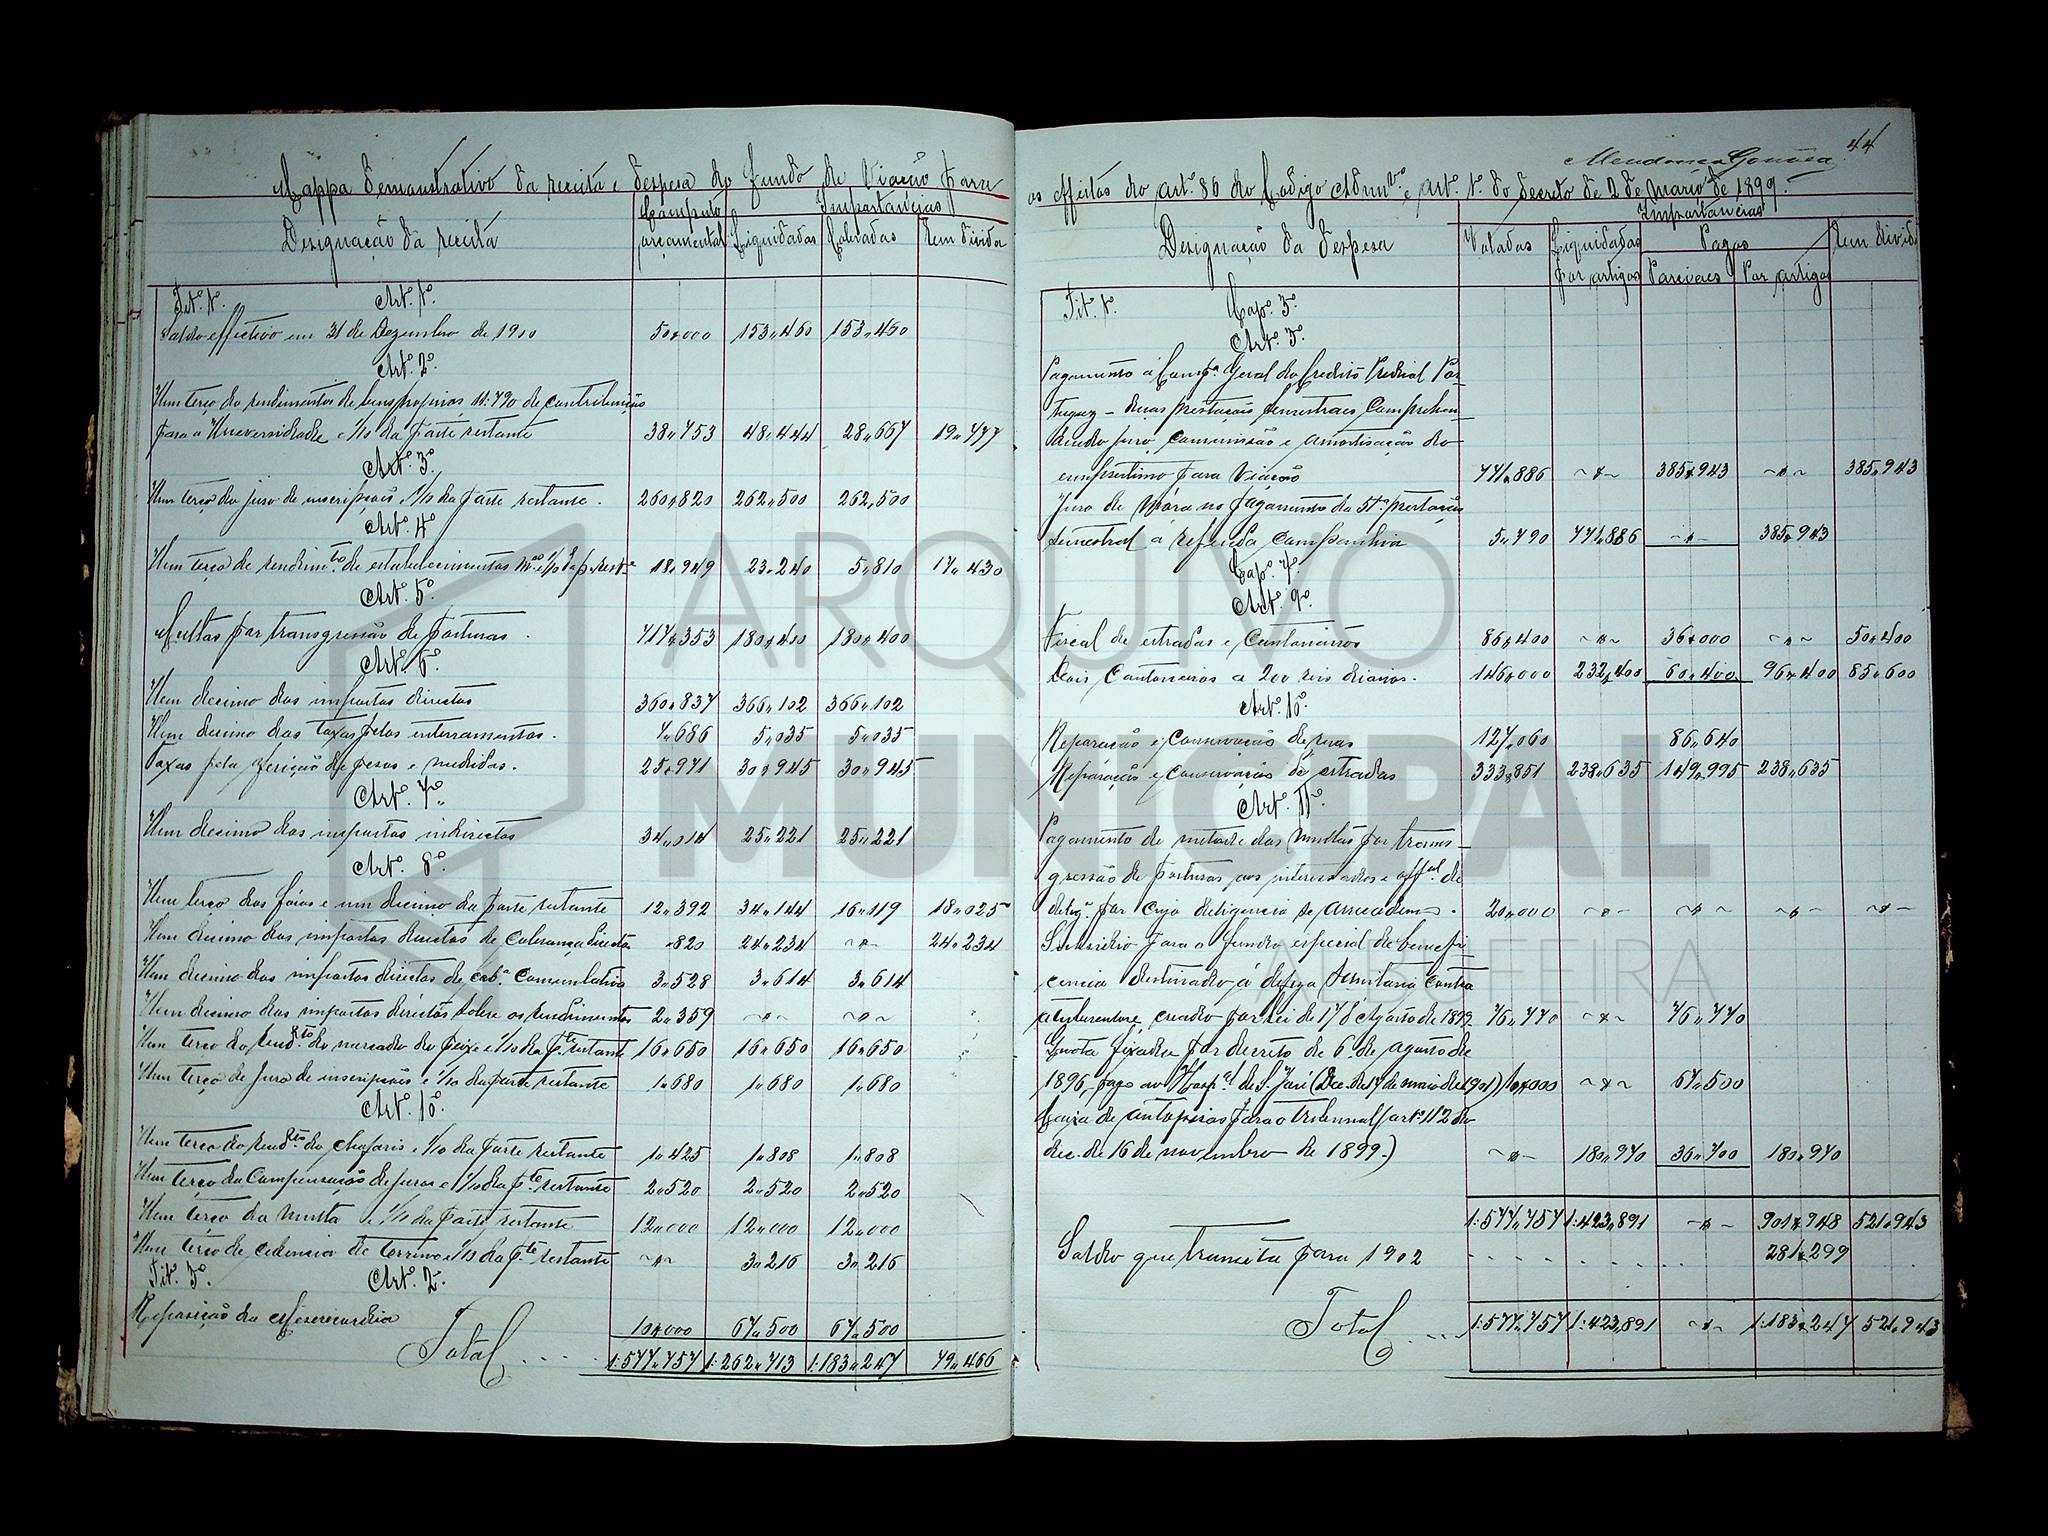 Mappa demonstrativo da receita e despesa do fundo de Viação para
Designação da receita
Computo orçamental
Importancias
Liquidadas
Cobradas
Em divida
Tit.º 1.º Art.º 1.º
Saldo effectivo em 31 de Dezembro de 1900 50„000 153„460 153„460
Art.º 2.º
Um terço do rendimento de bens proprios
para a Universidade e 1/10 da parte restante 38„753 48„444 28„667 19„777
Art.º 3.º
Um terço do juro de inscripções e 1/10 da parte restante. 260„820 262„500 262„500
Art.º 4.º
Um terço de rendim.to de estabelecimentos 18„949 23„240 5„810 17„430
Art.º 5.º
Multas por transgressão de posturas. 717„353 180„400 180„400
Art.º 6.º
Um decimo dos impostos directos 360„837 366„102 366„102
Um decimo das taxas pelos enterramentos. 4„686 5„035 5„035
Taxas pela aferição de pesos e medidas. 25„971 30„945 30„945
Art.º 7.º
Um decimo dos impostos indirectos 34„014 25„221 25„221
Art.º 8.º
Um terço dos fóros e um decimo da parte restante 12„392 34„144 16„119 18„025
Um decimo dos impostos directos de cobrança directa „820 24„234 ~„~ 24„234
Um decimo dos impostos directos de cob.ª cumulativa 3„528 3„614 3„614
Um decimo dos impostos directos sobre os rendimentos 2„359 ~„~ ~„~
Um terço do rend.to do mercado do peixe e 1/10 da p.te restante 16„650 16„650 16„650
Um terço de juro de inscripções e 1/10 da parte restante 1„680 1„680 1„680
Art.º 10.º
Um terço do rend.to do chafaris e 1/10 da parte restante 1„425 1„808 1„808
Um terço da compensação de e 1/10 da p.te restante 2„520 2„520 2„520
Um terço da multa e 1/10 da parte restante 12„000 12„000 12„000
Um terço de cedencia de terreno e 1/10 da p.te restante ~„~ 3„216 3„216
Tit.º 3.º Art.º 2.º
Reposição da Misericordia 10„000 67„500 67„500
Total 1:577„757 1:262„713 1:183„247 79„466
44
Mendonça Gouvea
os effeitos do art.º 86 do Codigo Adm.vo e art.º 1.º do decreto de 2 de Março de 1899.
Designação da despesa
Importancias
Votadas
Liquidadas por artigos
Pagas
Parciaes
Por artigos
Em divida
Tit.º 1.º Cap.º 3.º
Art.º 3.º
Pagamento á Comp.ª Geral do Credito Predial Por-
tuguez – duas prestações semestraes comprehen-
dendo juro, commissão e amortisação do
emprestimo para Viação 771„886 ~„~ 385„943 ~„~ 385„943
Juro de Móra no pagamento da 51.ª prestação
semestral á referida companhia 5„790 771„886 ~„~ 385„943
Cap.º 7.º
Art.º 9.º
Fiscal de estradas e cantoneiros 86„400 ~„~ 36„000 ~„~ 50„400
Dois Cantoneiros a 200 reis diarios. 146„000 232„400 60„400 96„400 85„600
Art.º 10.º
Reparação e conservação de 127„060 86„640
Reparação e conservação de estradas 333„851 238„635 149„995 238„635
Art.º 11.º
Pagamento de metade das multas por trans-
gressão de posturas aos interessados e off.al de
delig.ª por cuja deligencia se arrecadem. 20„000 ~„~ ~„~ ~„~ ~„~
Subsidio para o fundo especial de benefi-
cencia destinado á defeza sanitaria contra
a tuberculose, creado por lei de 17 d'Agosto de 1899 76„770 ~„~ 76„770
Quota fixada por decreto de 6 de agosto de
1896, pago ao Hosp.al de S. José (Dec. de 17 de maio de 1901) 10„000 ~„~ 67„500
Caixa de autopsias para o tribunal (art.º 112 do
dec. de 16 de novembro de 1899.) ~„~ 180„970 36„700 180„970
1:577„757 1:423„891 ~„~ 901„948 521„943
Saldo que transita para 1902 281„299
Total 1:577„757 1:423„891 ~„~ 1:183„247 521„943
ARQUIVO
MUNICIPAL
ALBUFEIRA